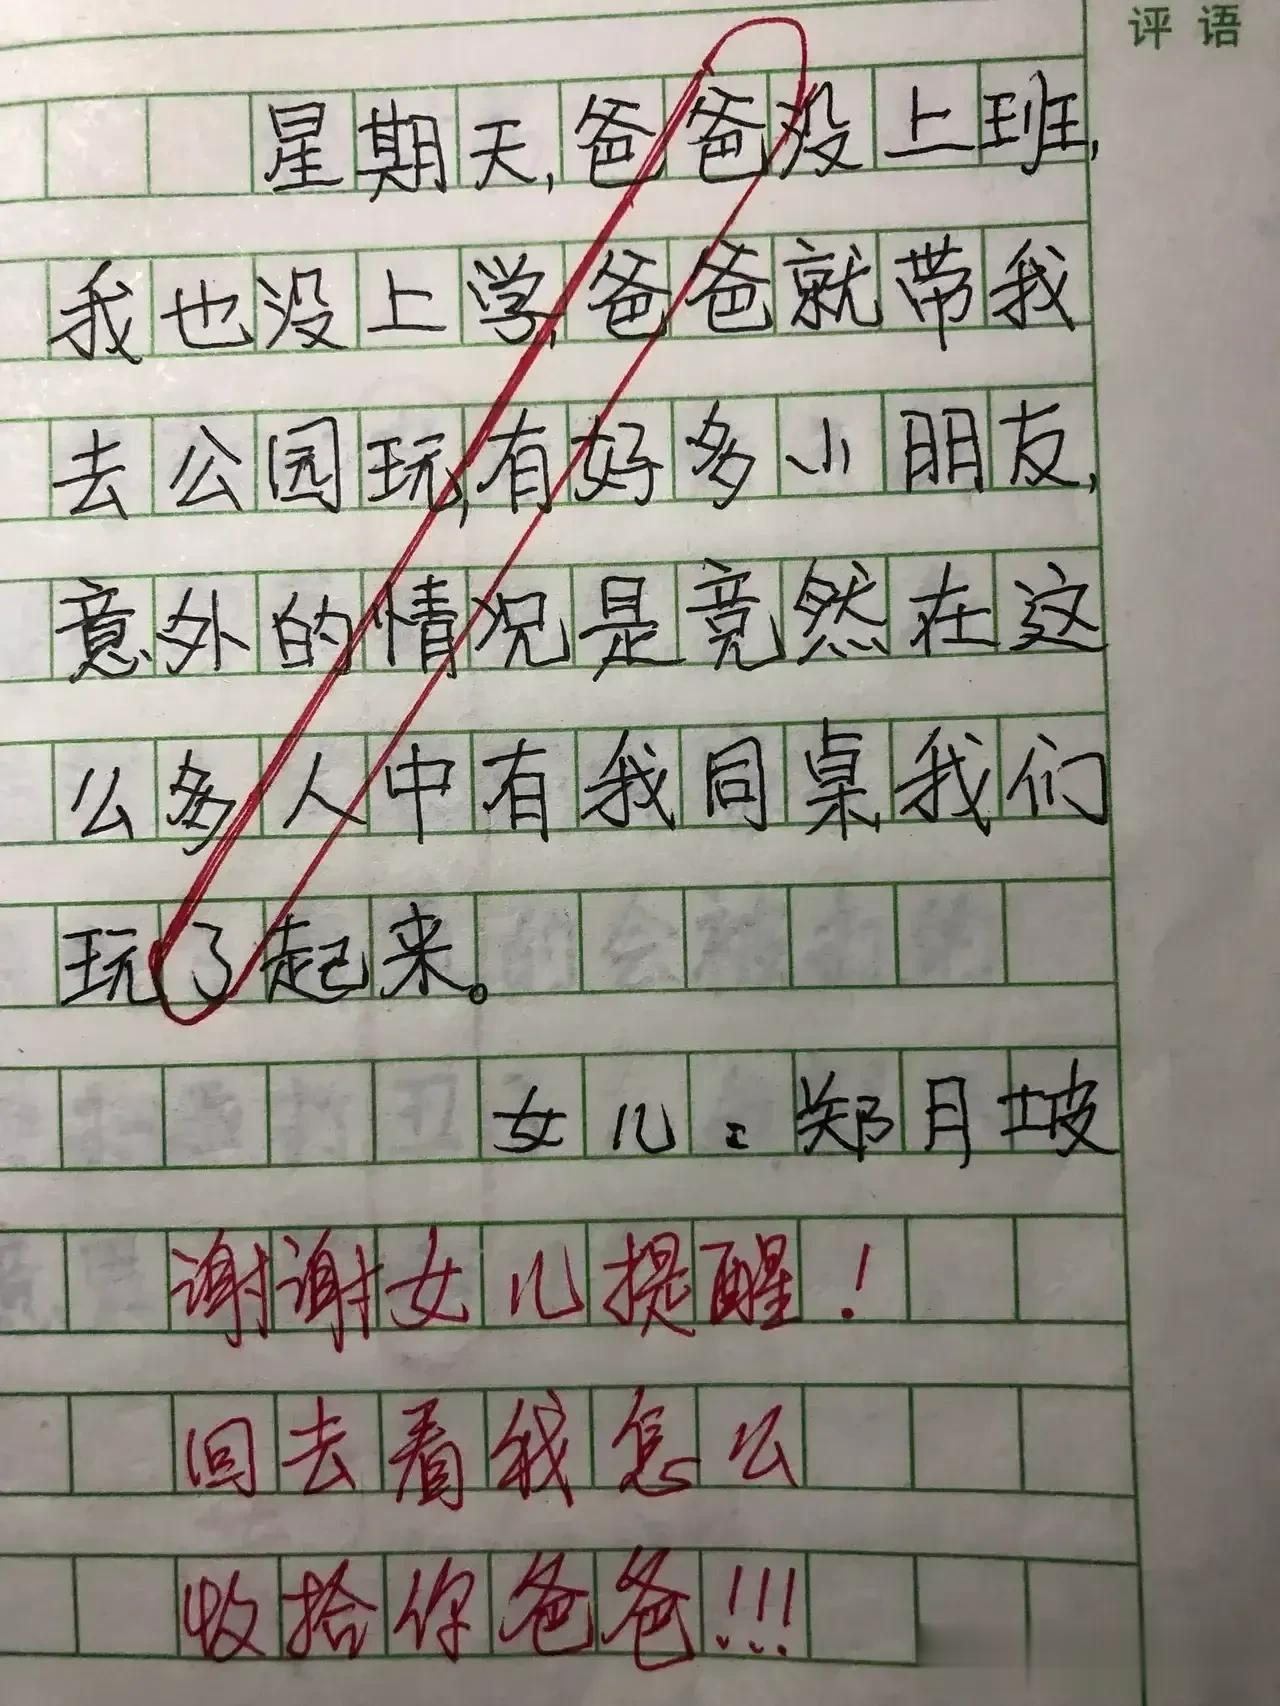 评语
星期天,爸爸没上班,
我也没上学,爸爸就带我
去公园玩,有好多小朋友,
意外的情况是竟然在这
么多人中有我同桌我们
玩了起来。
女儿:郑月坡
谢谢女儿提醒!
回去看我怎么
收拾你爸爸!!!